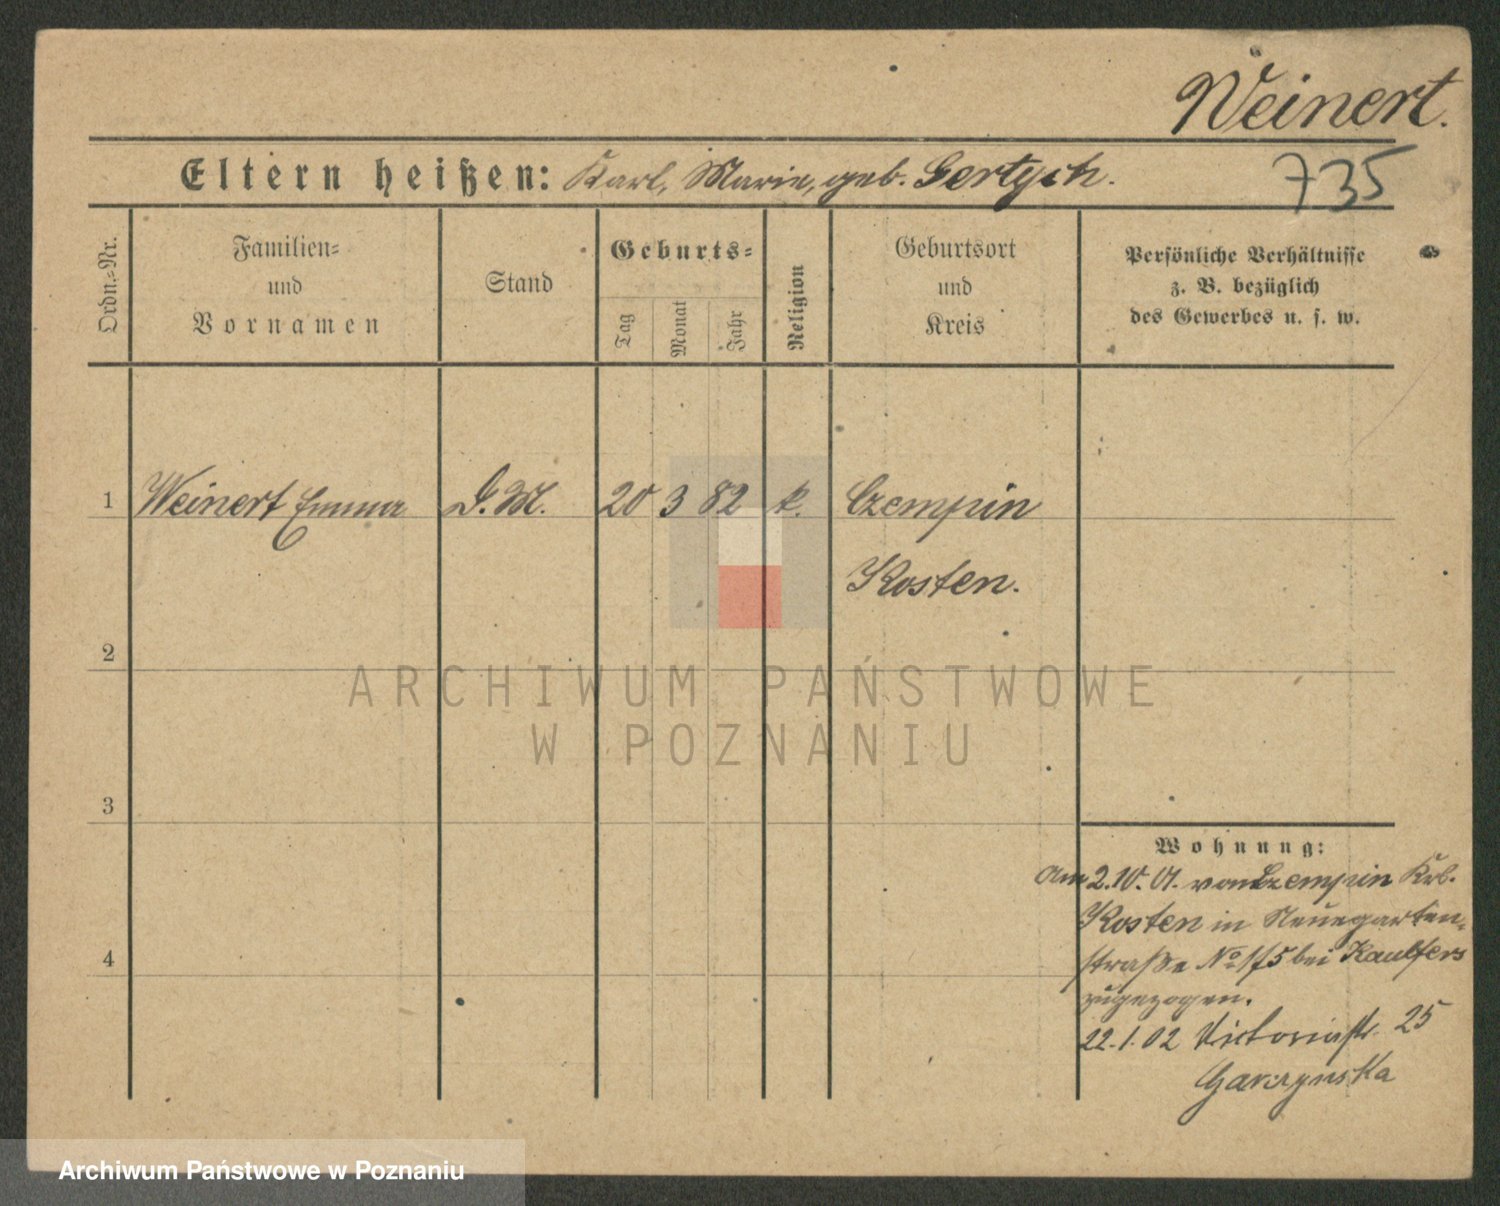 Weinert.
735
Eltern heißen: Karl, Marie, geb. Gertych.
Ordn.=Nr.
Familien=
und
Vornamen
Stand
Geburts=
Tag
Monat
Jahr
Religion
Geburtsort
und
Kreis
Persönliche Verhältnisse
z. B. bezüglich
des Gewerbes u. s. w.
1 Weinert Emma D. M. 20 3 82 k. Czempin
Kosten.
2
ARCHIWUM PAŃSTWOWE
W POZNANIU
3
Wohnung:
Am 2.10.01. von Czempin Krb.
Kosten in Neuegarten=
straße No 1/5 bei Kaulfers
zugezogen.
4
22.1.02 Victoriastr. 25
Garczynska
Archiwum Państwowe w Poznaniu